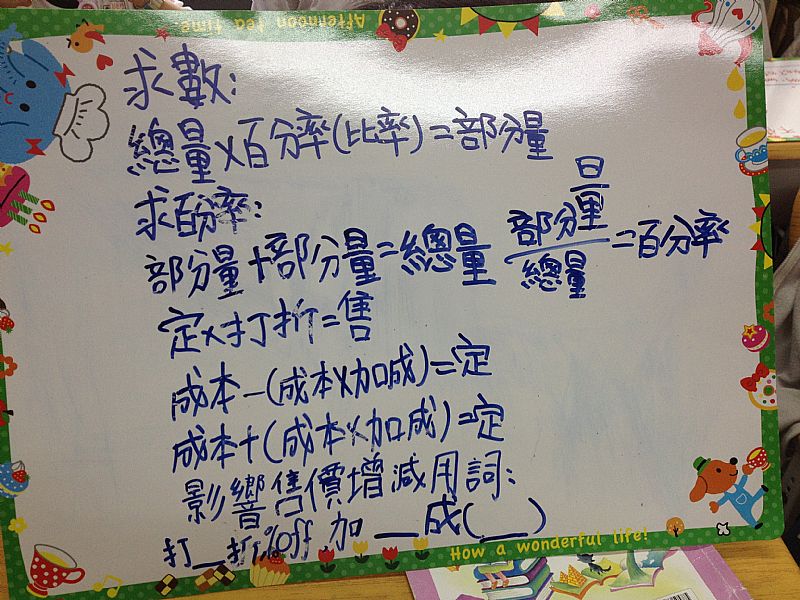 Afternoon tea time
求數:
總量×百分率(比率)=部分量
求百分率:
部分量+部分量=總量 部分量/總量=百分率
定×打折=售
成本-(成本×加成)=定
成本+(成本×加成)=定
影響售價增減用詞:
打__折%off,加__成(__)
How a wonderful life!